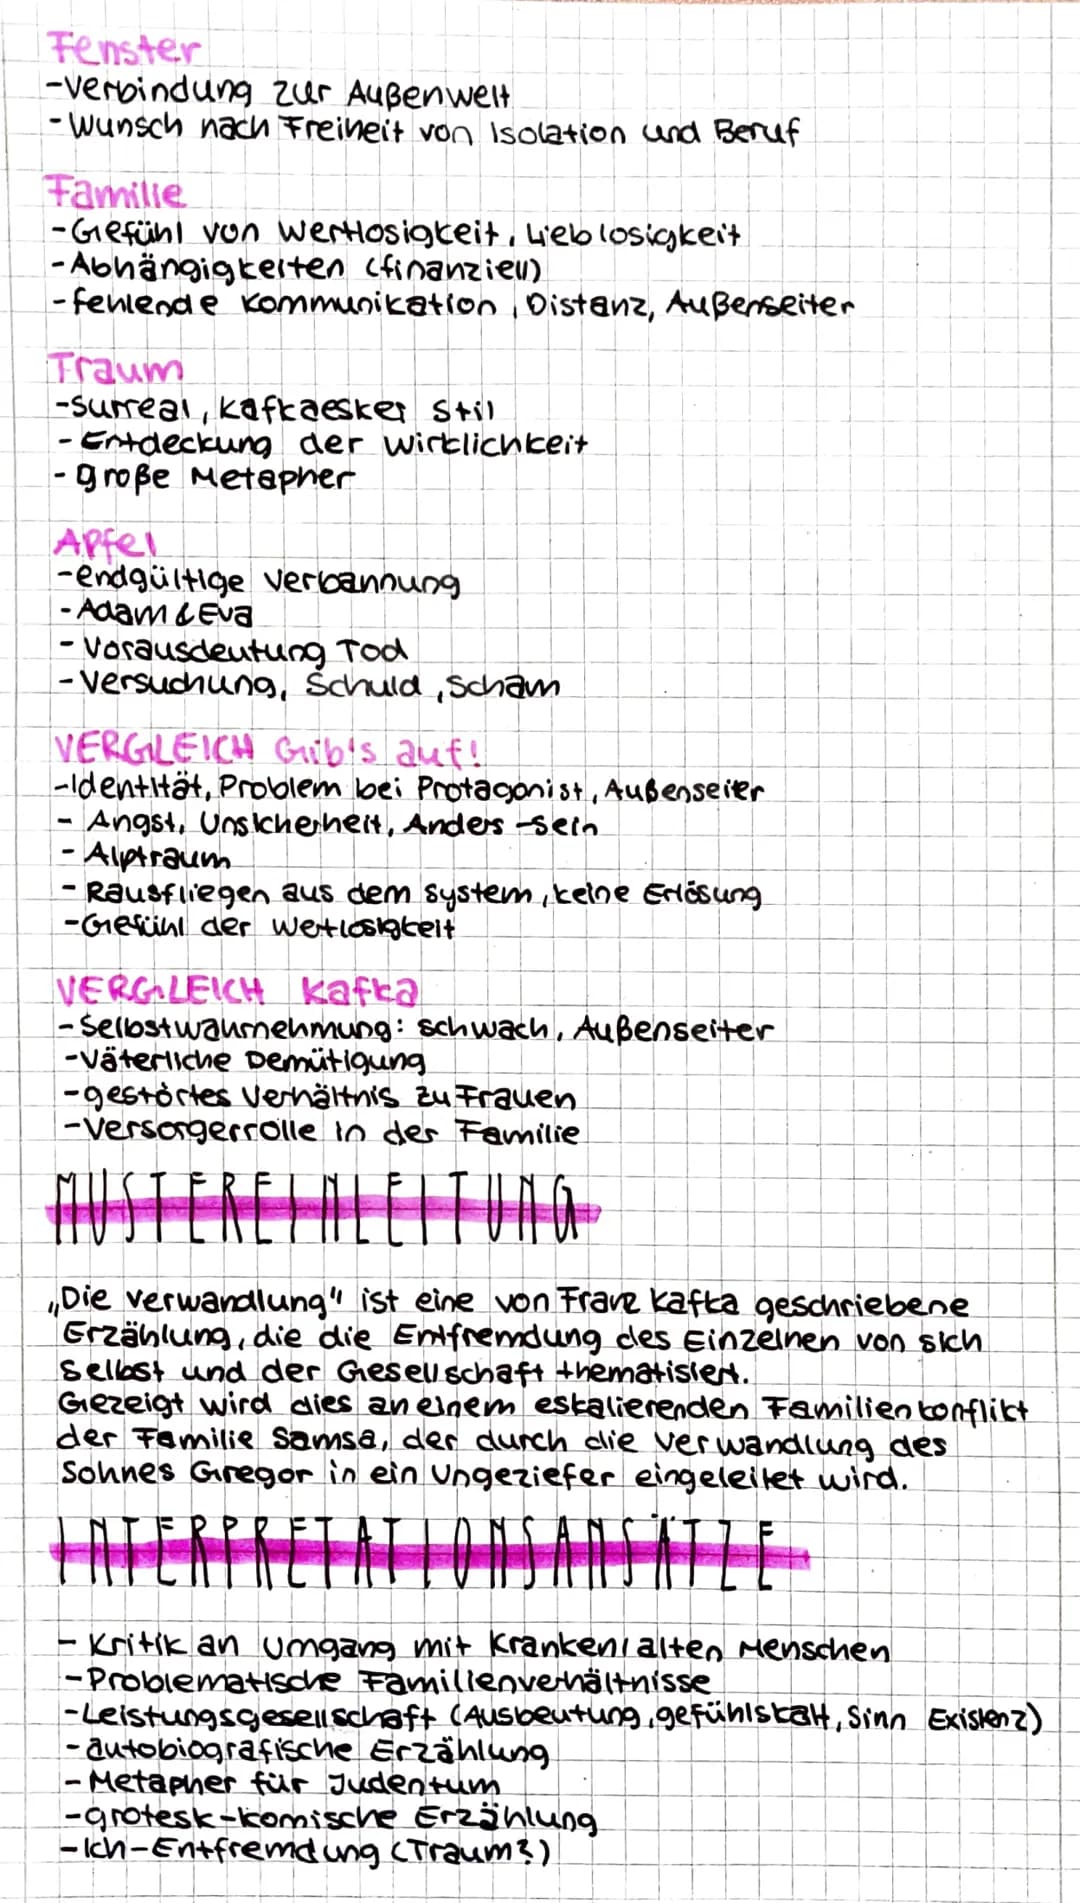 Fenster
-Verbindung zur Außenwelt
-Wunsch nach Freiheit von Isolation und Beruf
Familie
-Gefühl von Wertlosigkeit, Lieblosigkeit
-Abhängigkeiten (finanziell)
-fehlende Kommunikation, Distanz, Außenseiter
Traum
-surreal, kafkaesker Stil
-Entdeckung der Wirklichkeit
-große Metapher
Apfel
-endgültige Verbannung
-Adam & Eva
-Vorausdeutung Tod
-Versuchung, Schuld, Scham
VERGLEICH Gib's auf!
-Identität, Problem bei Protagonist, Außenseiter
- Angst, Unsicherheit, Anders-sein
- Alptraum
- Rausfliegen aus dem System, keine Erlösung
-Gefühl der Wertlosigkeit
VERGLEICH Kafka
-Selbstwahrnehmung: schwach, Außenseiter
-Väterliche Demütigung
-gestörtes Verhältnis zu Frauen
-Versorgerrolle in der Familie
MUSTEREINLEITUNG
„Die Verwandlung" ist eine von Franz Kafka geschriebene
Erzählung, die die Entfremdung des Einzelnen von sich
selbst und der Gesellschaft thematisiert.
Gezeigt wird dies an einem eskalierenden Familienkonflikt
der Familie Samsa, der durch die Verwandlung des
Sohnes Gregor in ein Ungeziefer eingeleitet wird.
INTERPRETATIONSANSÄTZE
- Kritik an Umgang mit Kranken/alten Menschen
-Problematische Familienverhältnisse
-Leistungsgesellschaft (Ausbeutung, gefühlskalt, Sinn Existenz)
-autobiografische Erzählung
-Metapher für Judentum
-grotesk-komische Erzählung
-Ich-Entfremdung (Traum?)